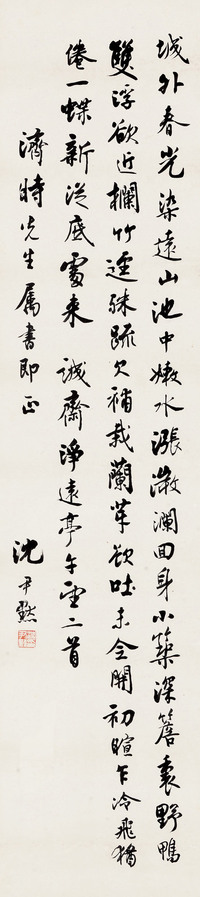 城外春光染遠山池中嫩水漲微瀾回身小築深簷裏野鴨
雙浮欲近攔竹逕殊疏欠補栽蘭芽欲吐未全開初暄乍冷飛猶
倦一蝶新從底處來 誠齋淨遠亭午望二首
濟時先生屬書即正
沈尹默